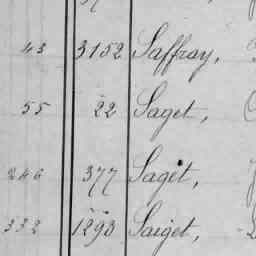 43 3152 Saffray,
55 22 Saget,
246 377 Saget,
332 1293 Saiget,